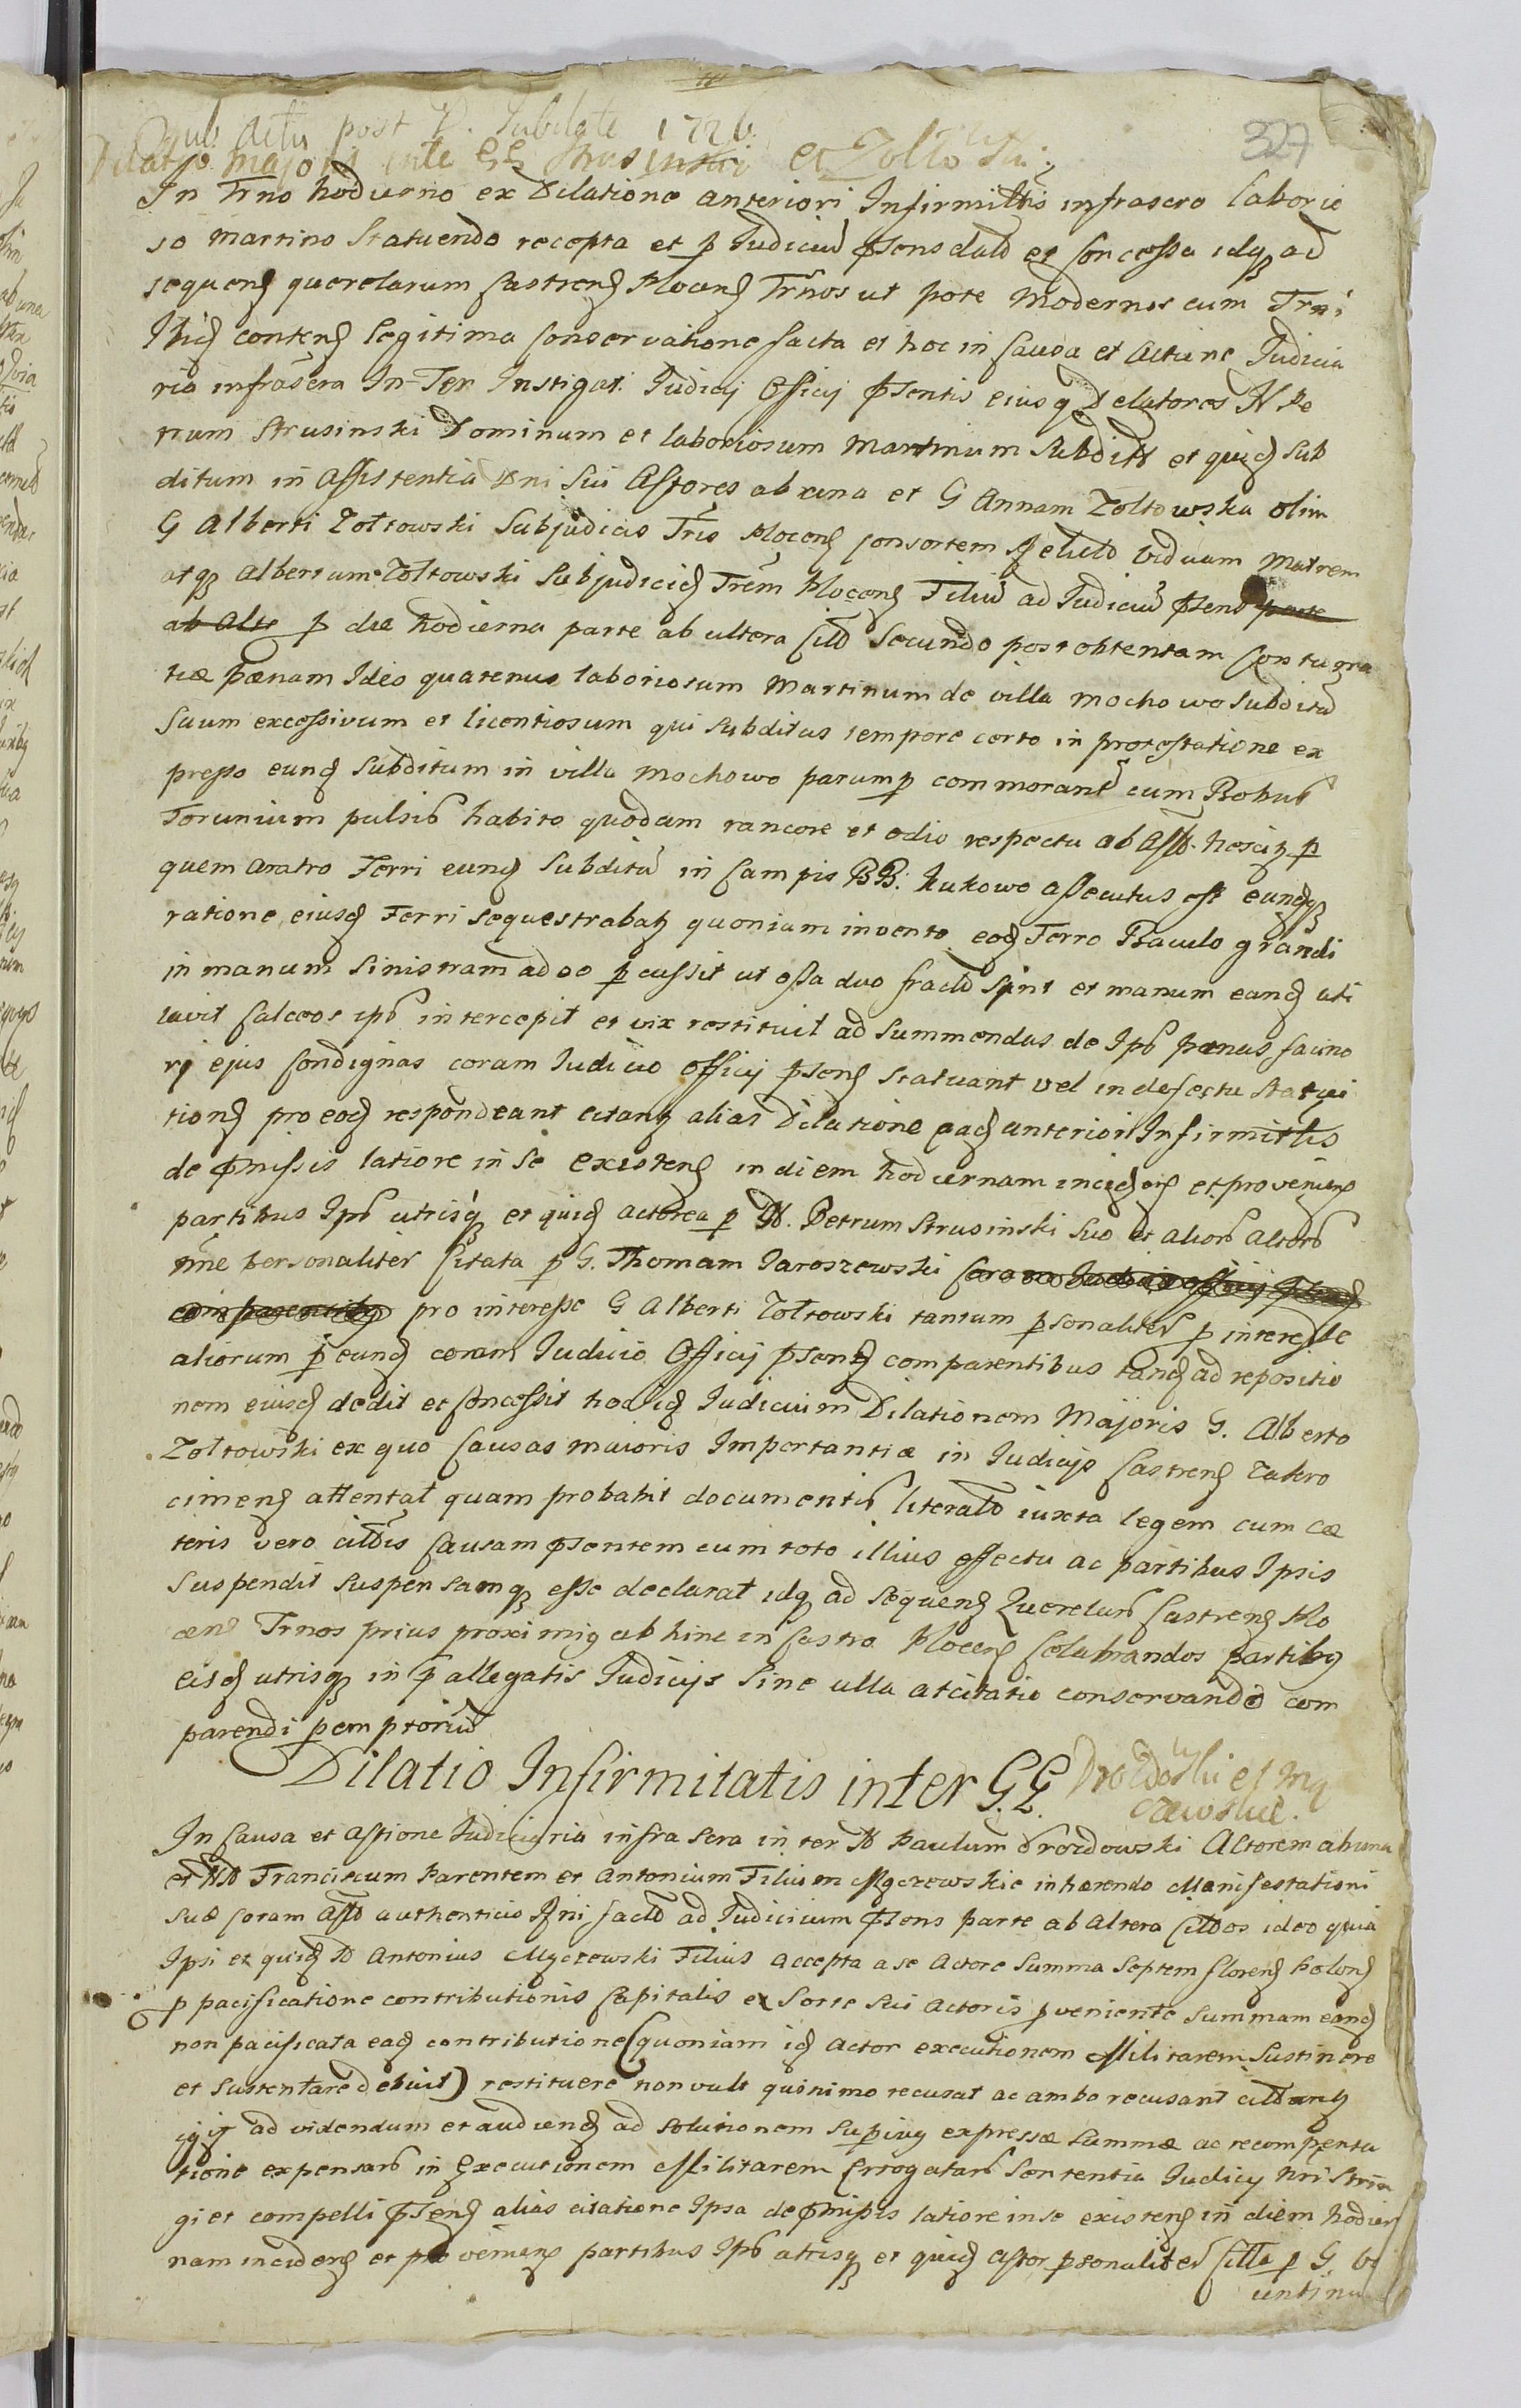 Sub Actu post D. Jubilate 1726
327
Dilatio majoris inte GG Strusinski et Zołtowski
In Trno hodierno ex Dilatione anteriori Infirmittis infrascro Laborio
so Martino Statuendo recepta et p Judiciu psens data et Concessa idq ad
sequens querelarum Castrens Plocens Trnos ut pote Modernos cum Trni
Ibid contens legitima Conservatione facta et hoc in Causa et Actione Judicia
ria infrascra In-Ter Instigat. Judicij Officij psentis eiusq Delatores N Pe
trum Strusinski Dominum et laboriosum Martinum Subditu et quid Sub
ditum in Assistentia Dni Sui Actores ab una et G Annam Zołtowska olim
G Alberti Zołtowski Subjudicis Tris Plocens Consortem relicta Viduam Matrem
atq Albertum Zołtowski Subjudicid Trem Plocens Filiu ad Judiciu psens parte
ab Alte p die hodierna parte ab altera Citd Secundo post obtentam Contuma
tiæ pænam Ideo quatenus laboriosum Martinum de villa Mochowo Subditu
Suum excessivum et licentiosum qui Subditus tempore certo in protestatione ex
presso eund Subditum in villa Mochowo parump commorant cum Bobus
Torunium pulsis habito quodam rancore et odio respectu ab Actore
quem aratro Ferri eund Subditu in Campis BB. Kukowo assecutus est eundq
ratione eiusd Ferri sequestrabat quoniam invento eod Ferro Baculo grandi
in manum Sinistram adeo p cussit ut ossa duo fracta Sint et manum eand uti
lavit Calceos ips intercepit et vix restituit ad Summendas de Ips pænas facino
ri ejus Condignas coram Judicio Officij psens Statuant vel in defectu Statui
tions pro eod respondeant citant alias Dilatione ead anteriori Infirmittis
de pmissis latiore in Se Existens in diem hodiernam incidens et proveniens
partibus Ips utrisq et quid actorea p N. Petrum Strusinski Suo et alior Actor
nne personaliter Citata p G. Thomam Jaroszewski Coram Judicio officij psens
comparentibus pro interesse G Alberti Zołtowski tantum psonaliter p interesse
aliorum p eund coram Judicio Officij psens comparentibus tand ad repositio
nem eiusd dedit et Concessit hoc id Judicium Dilationem Majoris G. Alberto
Zołtowski ex quo Causas maioris Importantiæ in Judicijs Castrens Zakro
cimens attentat quam probabit documentis literatd iuxta legem cum cæ
teris vero citdis Causam psentem cum toto illius effectu ac partibus Ipsis
Suspendit Suspensamq esse declarat idq ad Sequens Querelar Castrens Plo
cens Trnos prius proximis ab hinc in Castro Plocens Celebrandos partibus
eisd utrisq in p allegatis Judicijs Sine ulla atcitatio conservando com
parendi pemptoriu
Dilatio Infirmitatis inter G.G. Drozdowski et My
czewskie.
In Causa et Actione Judiciaria infra Scra inter N Paulum Drozdowski Actorem ab una
et NN Franciscum Parentem et Antonium Filium Myczewskie inhærendo Manifestationi
Suæ Coram Actd authenticis Pni facta ad Judicium psens parte ab Altera Citdos ideo quia
Ipsi et quid N Antonius Myczewski Filius accepta a se Actore Summa Septem florens Polons
p pacificatione contributionis Capitalis ex Sorte Sui Actoris pveniente Summam eand
non pacificata ead contributione (quoniam id Actor executionem Militarem Sustinere
et Sustentare debuit) restituere non vult quinimo recusat ac ambo recusant citdantq
igit ad videndum et audiend ad Solutionem Supius expressæ Summæ ac recompensa
tione expensar in Executionem Militarem Errogatar Sententia Judicij Nri Strin
gi et compelli psens alias citatione Ipsa de pmissis latiore in se existens in diem hodier
nam incidens et proveniens partibus Ips utrisq et quid Actor psonaliter Citta p G. Va
lentinu